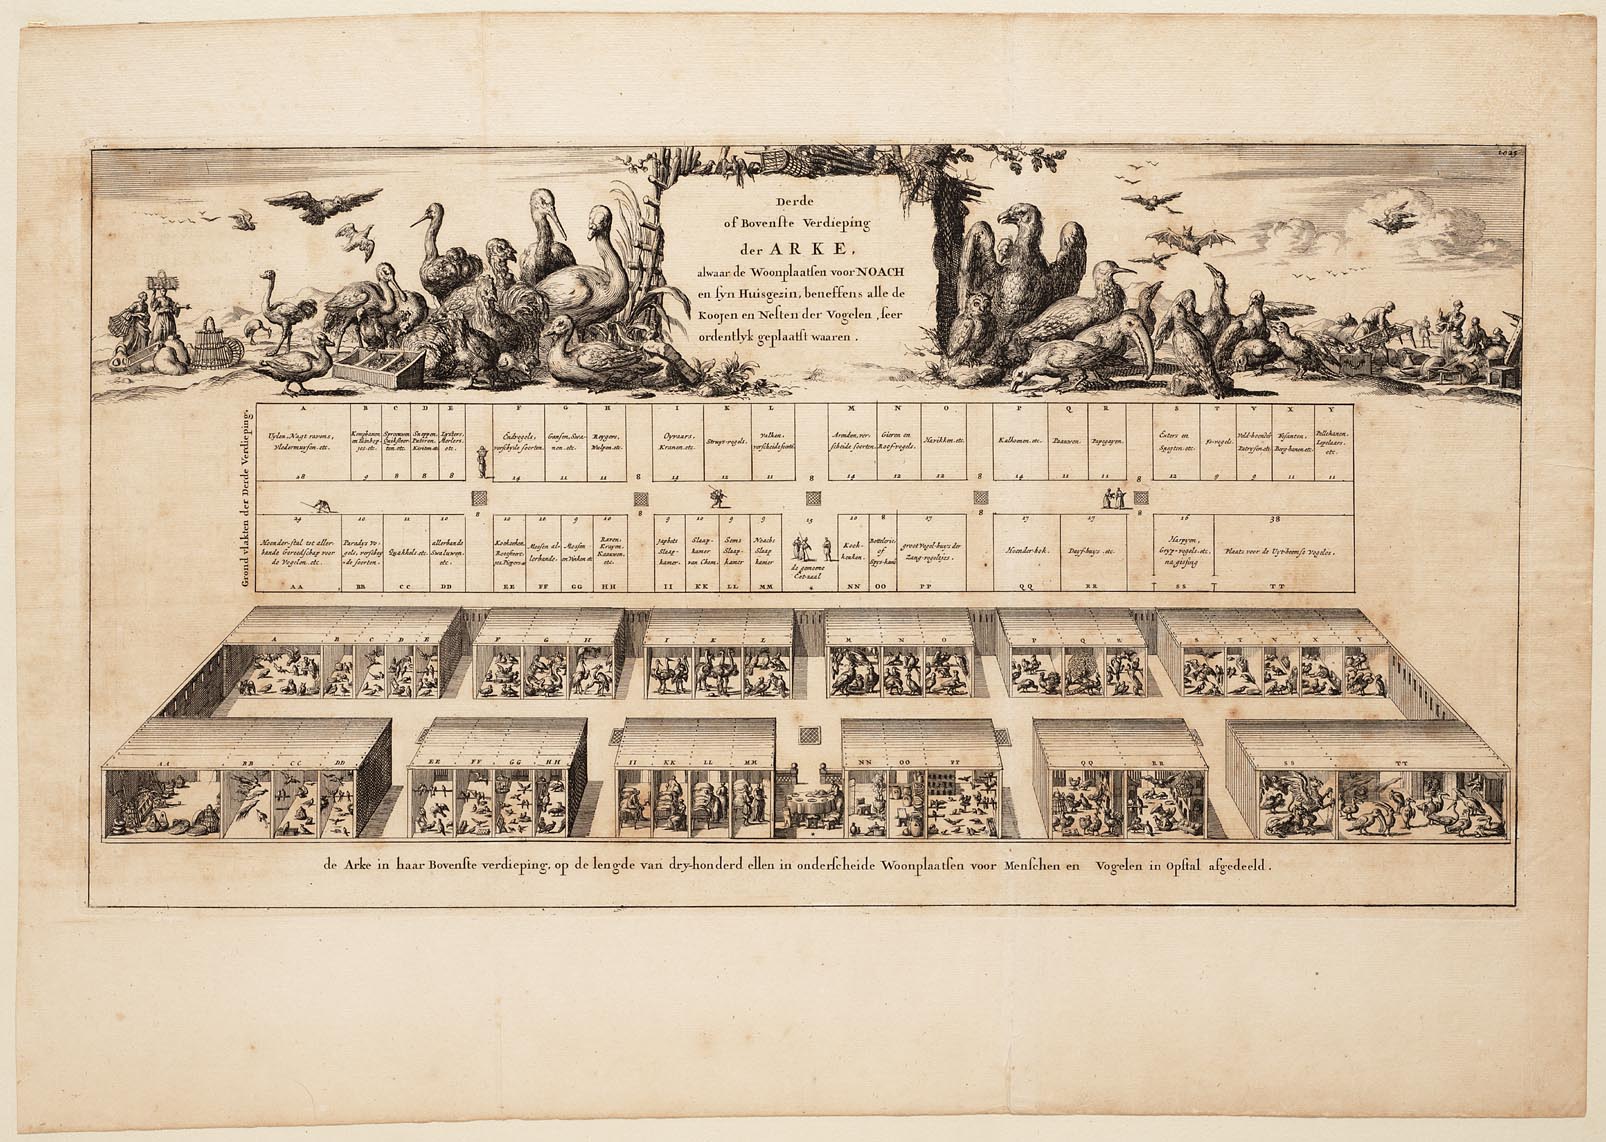 1025
Derde
of Bovenſte Verdieping
der ARKE,
alwaar de Woonplaatſen voor NOACH
en ſyn Huisgezin, beneffens alle de
Koojen en Neſten der Vogelen, ſeer
ordentlyk geplaatſt waaren.
Grond vlakten der Derde Verdieping.
A B C D E F G H I K L M N O P Q R S T V X Y
Uylen, Nagt ravens,
Vledermuyſen. etc.
etc.
etc.
etc.
Endvogels,
verſcheide ſoorten.
Ganſen, Swa-
nen. etc.
Reygers,
Wulpen. etc.
Oyvaars,
Kranen. etc.
Struyt-vogels.
Valken,
Arenden, ver-
ſcheide ſoorten.
Gieren en
Roof-vogels.
Havikken. etc.
Kalkoenen. etc.
Paauwen.
Papegayen.
Exters en
Spegten. etc.
Ys-vogels.
Veld-hoender
Patryſen etc.
Faſanten,
Berg-hanen etc.
Pellekanen.
Lepelaers.
etc.
28 9 8 8 8 14 11 11 8 11 12 11 8 14 12 12 8 14 11 11 8 11 9 9 11 11
8 8 8 8 8
24 10 11 10 10 10 9 10 9 10 9 9 15 10 8 17 17 17 16 38
Hoender-ſtal tot aller-
hande Gereedſchap voor
de Vogelen. etc.
Paradys Vo-
gels, verſchey-
de ſoorten.
Quakkels. etc.
allerhande
Swaluwen.
etc.
Koekoeken,
Meeſen al-
lerhande.
Moſſen
en Vinken etc.
Raven.
Krayen.
Kaauwen.
etc.
Japhets
Slaap-
kamer.
Slaap-
kamer
van Cham.
Sems
Slaap-
kamer
Noachs
Slaap
kamer
de gemeene
Eet-zaal
Kook-
keuken.
Bottelerie
of
Spys-kamer
groot Vogel-huys der
Zang-vogeltjes.
Hoender-hok.
Duyf-huys. etc.
Harpyen,
Gryp-vogels. etc.
na giſſing
Plaats voor de Uyt-heemſe Vogelen.
AA BB CC DD EE FF GG HH II KK LL MM NN OO PP QQ RR SS TT
A B C D E F G H I K L M N O P Q R S T V X Y
AA BB CC DD EE FF GG HH II KK LL MM NN OO PP QQ RR SS TT
de Arke in haar Bovenſte verdieping, op de lengde van dry-honderd ellen in onderſcheide Woonplaatſen voor Menſchen en Vogelen in Opſtal afgedeeld.